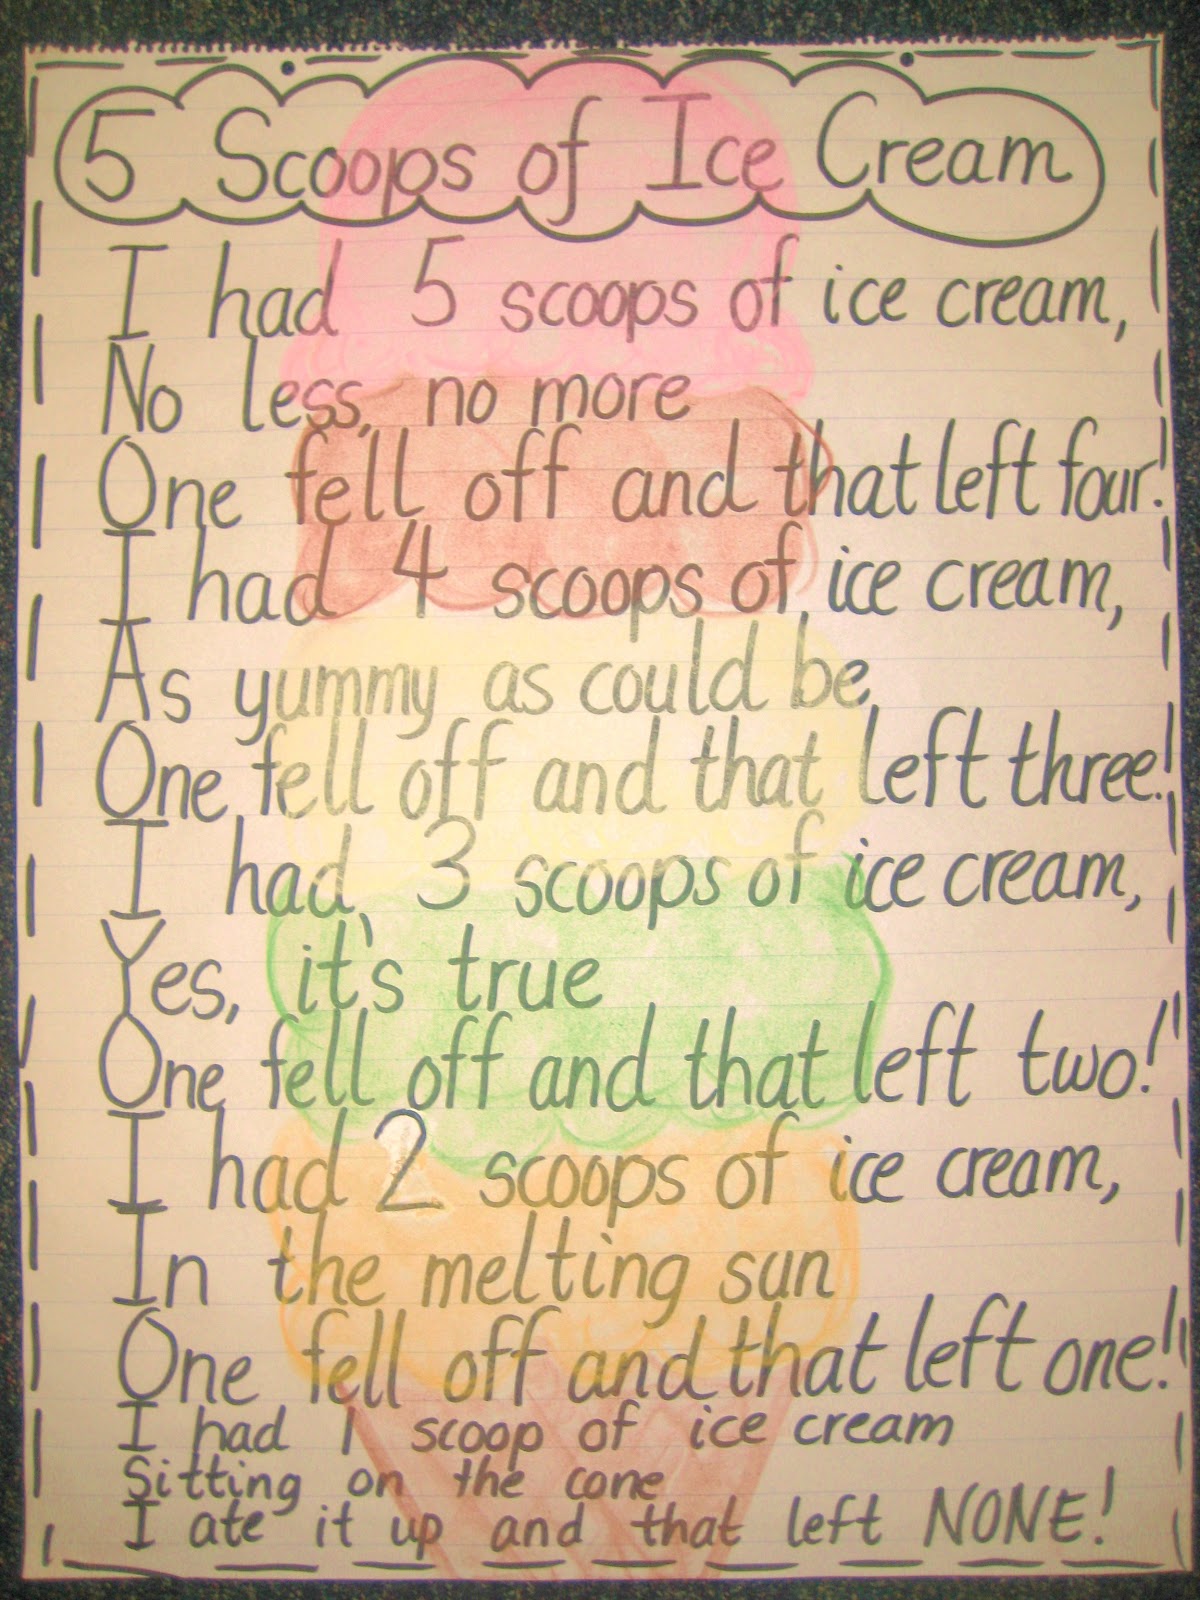 5 Scoops of Ice Cream
I had 5 scoops of ice cream,
No less, no more
One fell off and that left four!
I had 4 scoops of ice cream,
As yummy as could be,
One fell off and that left three!
I had, 3 scoops of ice cream,
Yes, it's true
One fell off and that left two!
I had 2 scoops of ice cream,
In the melting sun
One fell off and that left one!
I had 1 scoop of ice cream
Sitting on the cone
I ate it up and that left NONE!